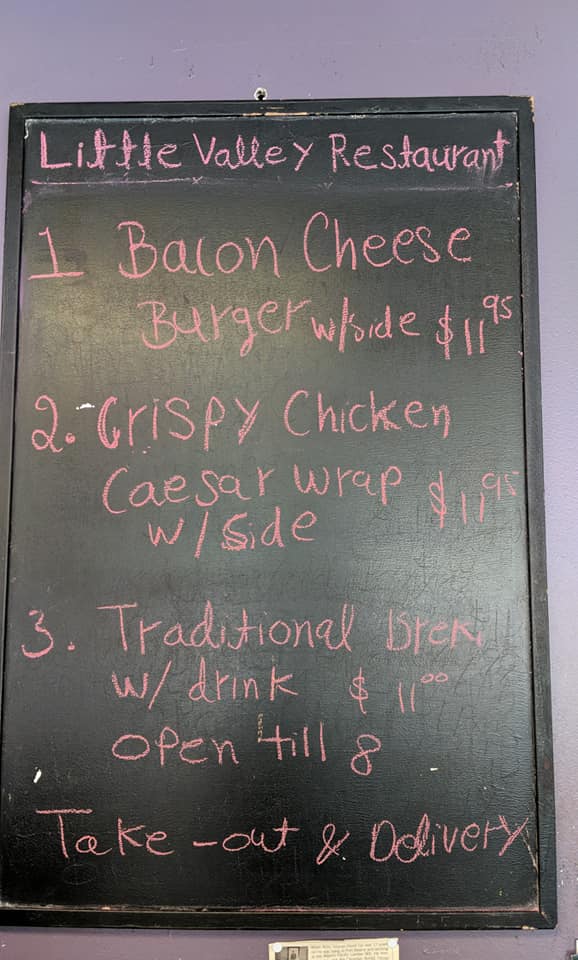 Little Valley Restaurant
1 Bacon Cheese
Burger w/side $11 95
2. Crispy Chicken
Caesar wrap $11 95
w/ Side
3. Traditional Breki
w/ drink $11 00
open till 8
Take-out & Delivery